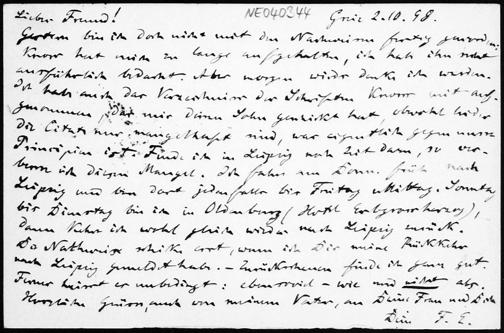 Lieber Freund! NE040344 Graz 2.10.98.
Gestern bin ich doch nicht mit den Nachweisen fertig geworden:
Knorr hat mich zu lange aufgehalten, ich hab ihn recht
ausführlich bedacht. Aber morgen wieder denke ich werden.
Ich habe auch das Verzeichniss der Schriften Knorrs mit auf-
genommen, das mir dann Sohn geschickt hat, obwohl leider
die Citate nur mangelhaft sind, was eigentlich gegen unsere
Principien ist. Finde ich in Leipzig noch Zeit dann, so ver-
bessre ich diesen Mangel. Ich fahre am Donn. früh nach
Leipzig und bin dort jedenfalls bis Freitag Mittag. Sonntag
bis Dienstag bin ich in Oldenburg (Hotel Erbgrossherzog),
dann kehre ich wohl gleich wieder nach Leipzig zurück.
Die Nachweise schicke erst, wenn ich Dir meine Rückkehr
nach Leipzig gemeldet habe. – finde ich ganz gut.
Ferner heisst es unbedingt: ebensoviel – wie und nicht als.
Herzliche Grüsse, auch von meinem Vater, an Deine Frau und Dich
Dein F. E.